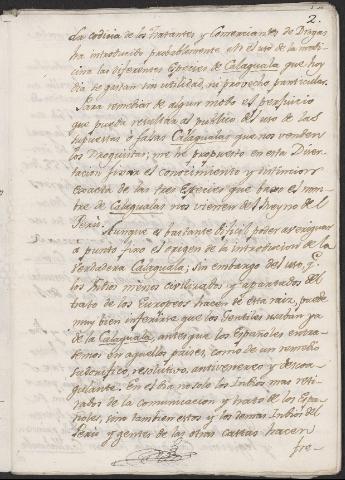 2.
La codicia de los Tratantes y Comerciantes de Drogas
ha introducido probablemente en el uso de la medi-
cina las diferentes Especies de Calaguala que hoy
dia se gastan sin utilidad, ni provecho particular.
Para remediar de algun modo el perjuicio
que pueda resultar al publico del uso de las
supuestas o falsas Calagualas que nos venden
los Droguistas; me he propuesto en esta Diser-
tacion fixar el conocimiento y distincion
exacta de las tres Especies que baxo el nom-
bre de Calagualas nos vienen del Reyno del
Perú.
Aunque es bastante dificil poder averiguar
a punto fixo el origen de la introduccion de la
verdadera Calaguala; sin embargo del uso, q.
los Indios menos civilizados y apartados del
trato de los Europeos hacen de esta raiz, puede
muy bien inferirse que los Gentiles usaban ya
de la Calaguala, antes que los Españoles entra-
sen en aquellos paises, como de un remedio
sudorifico, resolutivo, antivenereo y descoa-
gulante. En el dia no solo los Indios mas reti-
rados de la comunicacion y trato de los Espa-
ñoles, sino tambien estos y los demas Indios del
Perú y gentes de las otras castas hacen
fre-